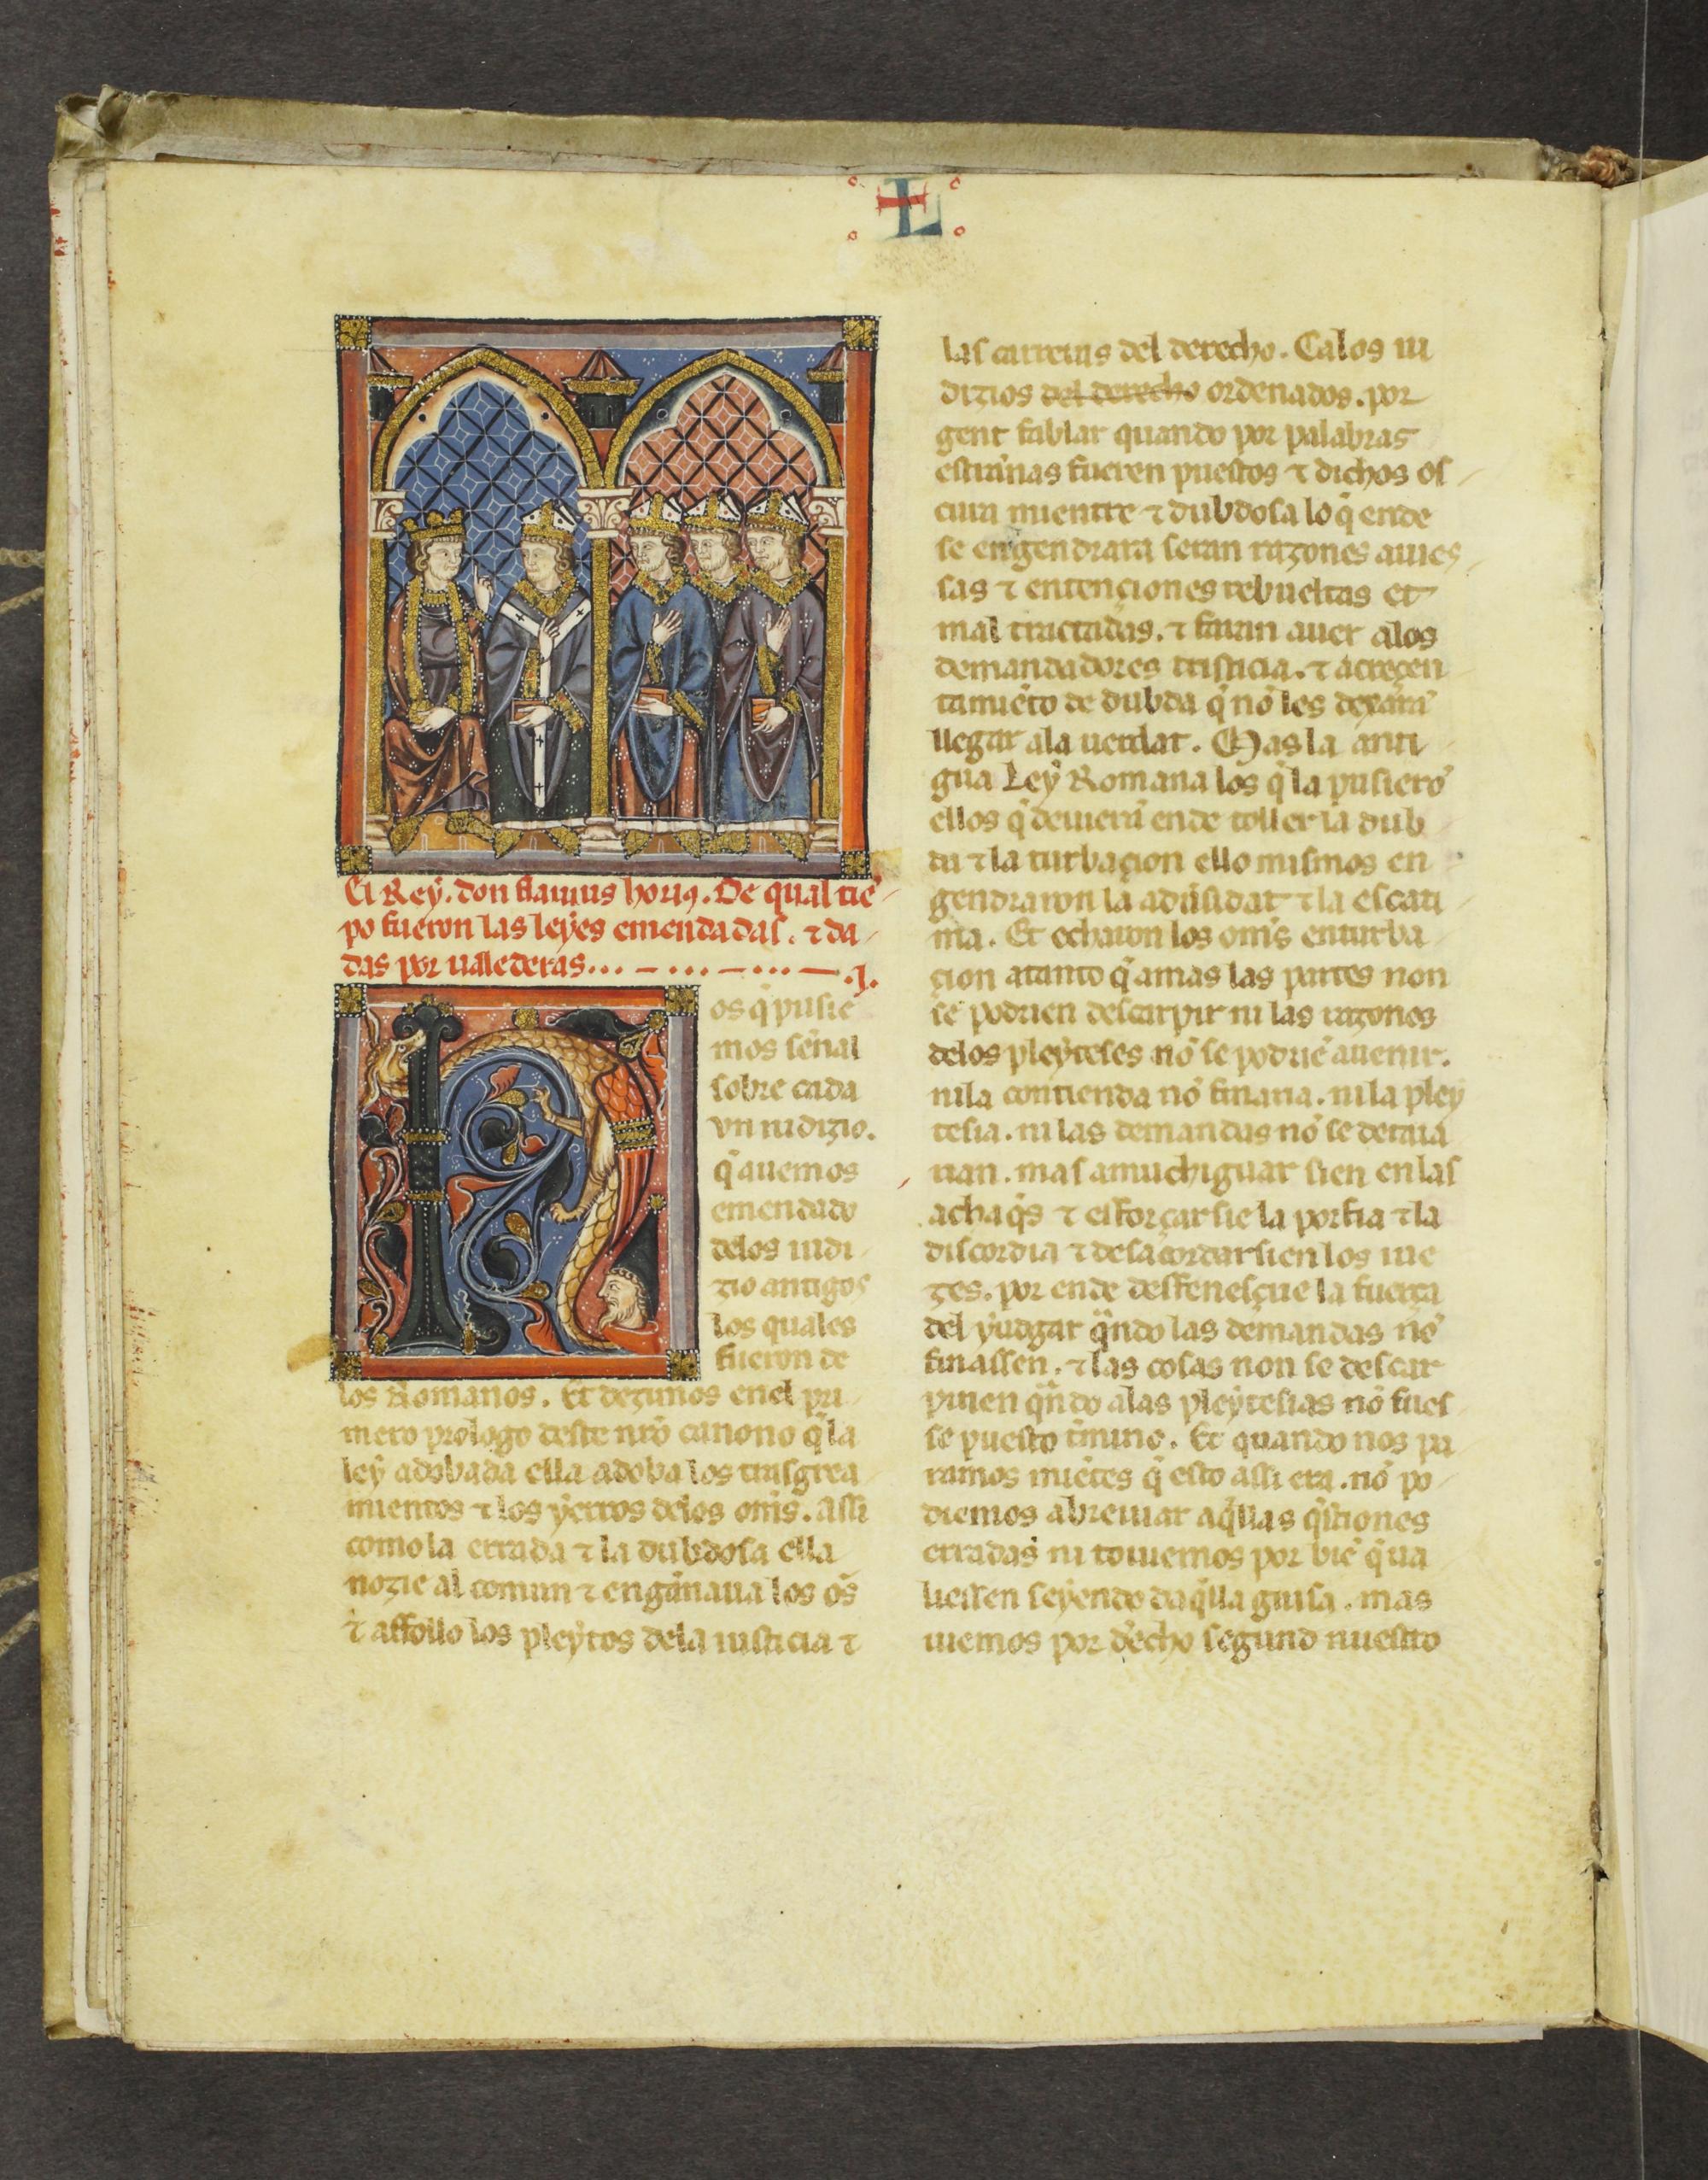 L
El Rey. don flauius horiꝯ. De qual tiē
po fueron las leyes emendadas. ⁊ da
das por ualederas... — ... — ... — .j.
N
os q̄ pusie
mos señal
sobre cada
vn iudizio.
q̄ auemos
emendado
delos iudi
zio antigos
los quales
fueron de
los Romanos. Et dezimos enel pri
mero prologo deste nr̄o canono q̄ la
ley adobada ella adoba los trasgrea
mientos ⁊ los yerros delos om̄s. Assi
como la errada ⁊ la dubdosa ella
nozie al comun ⁊ engānaua los oīs
⁊ affollo los pleytos dela iusticia ⁊
las carreras del derecho. Ca los iu
dizios del derecho ordenados. por
gent fablar quando por palabras
estrānas fueren puestos ⁊ dichos os
cura mientre ⁊ dubdosa lo q̄ ende
se engendrara seran razones auies
sas ⁊ entenciones rebueltas et
mal tractadas. ⁊ faran auer alos
demandadores tristicia. ⁊ acreçen
tamiēto de dubda q̄ nō les dexarā
llegar ala uerdat. Mas la anti
gua Ley Romana los q̄ la pusierō
ellos q̄ deuierā ende toller la dub
da ⁊ la turbaçion ello mismos en
gendraron la adūsidat ⁊ la escati
ma. Et echaron los om̄s enturba
çion atanto q̄ amas las partes non
se podrien descarpir ni las razones
delos pleyteses nō se podriē auenir.
ni la contienda nō finaria. ni la pley
tesia. ni las demandas nō se detaia
rian. mas amuchiguar sien en las
achaq̄s ⁊ esforçarsie la porfia ⁊ la
discordia ⁊ desacordarsien los iue
zes. por ende desfenesçiue la fuerça
del yudgar q̄ndo las demandas nō
finassen. ⁊ las cosas non se descar
pirien q̄ndo alas pleytesias nō fues
se puesto t̄mino. Et quando nos pa
ramos miētes q̄ esto assi era. nō po
diemos abreuiar aq̄llas q̄stiones
erradas ni touiemos por biē q̄ ua
liessen seyendo daq̄lla guisa. mas
uiemos por dēcho segund nuestro